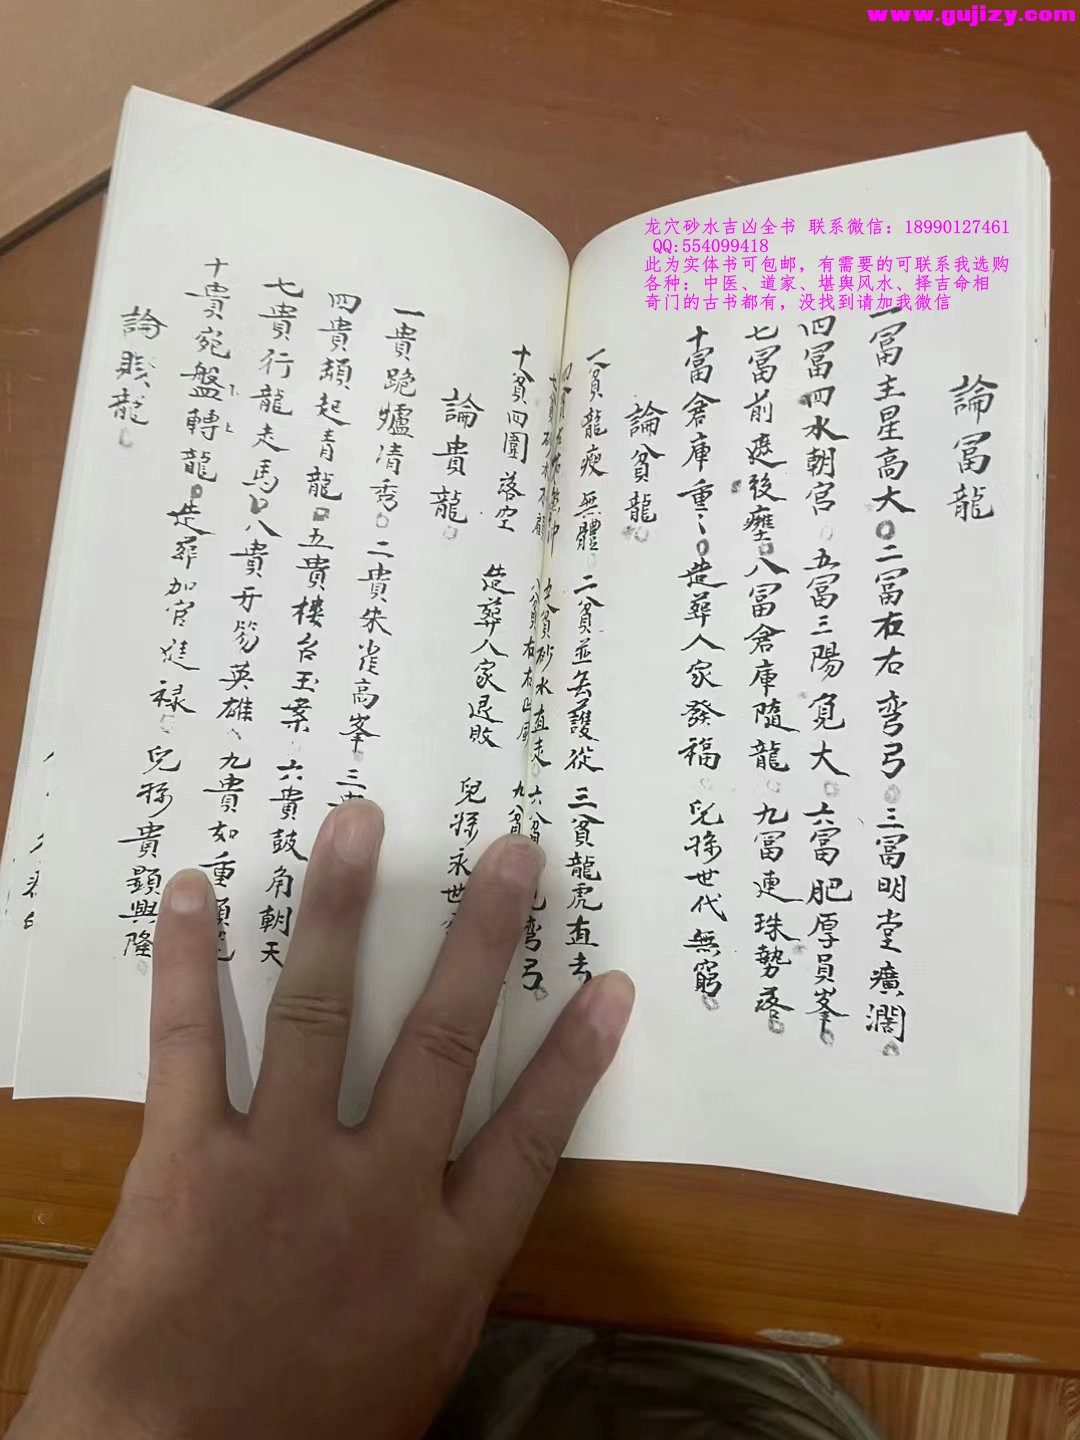 www.gujizy.com
龙穴砂水吉凶全书 联系微信：18990127461
QQ:554099418
此为实体书可包邮，有需要的可联系我选购
各种：中医、道家、堪舆风水、择吉命相
奇门的古书都有，没找到请加我微信
論冨龍
一冨主星高大 二冨左右弯弓 三冨明堂癀濶
四冨四水朝宫 五冨三陽寛大 六冨肥厚員峯
七冨前遮後 八冨倉庫隨龍 九冨連珠勢落
十冨倉庫重〻 造葬人家發福 兒孫世代無窮
論貧龍
一貧龍瘦無體 二貧並无護從 三貧龍虎直去
五貧砂水直走 六貧 弯弓
砂水不顧 八貧左右山 九貧
十貧四圍落空 造葬人家退敗 兒孫永世
論貴龍
一貴跪爐清秀 二貴朱雀高峯 三貴
四貴頡起青龍 五貴樓台玉案 六貴鼓角朝天
七貴行龍走馬 八貴牙笏英雄 九貴如重
十貴宛盤轉龍 造葬加官進禄 兒孫貴顯興隆
論賤龍